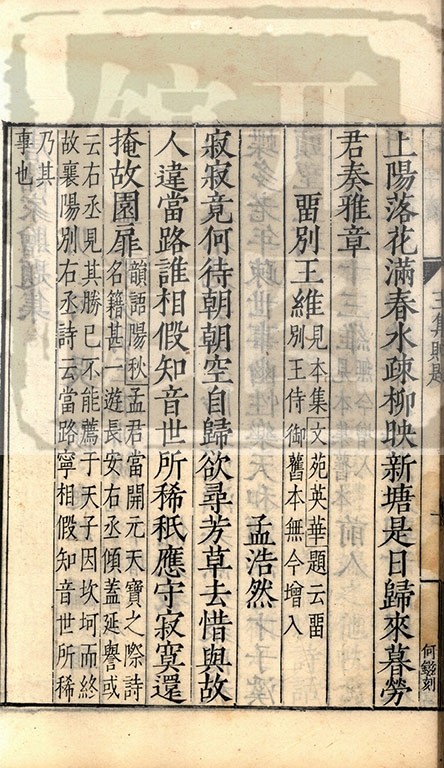 上陽落花滿春水疎柳映新塘是日歸來暮勞
君奏雅章
畱別王維見本集文苑英華題云畱
別王侍御舊本無今增入
孟浩然
寂寂竟何待朝朝空自歸欲尋芳草去惜與故
人違當路誰相假知音世所稀秪應守寂寞還
掩故園扉韻語陽秋孟君當開元天寶之際詩
名籍甚一遊長安右丞傾蓋延譽或
云右丞見其勝已不能薦于天子因坎坷而終
故襄陽別右丞詩云當路寧相假知音世所稀
乃其
事也
何鎡刻